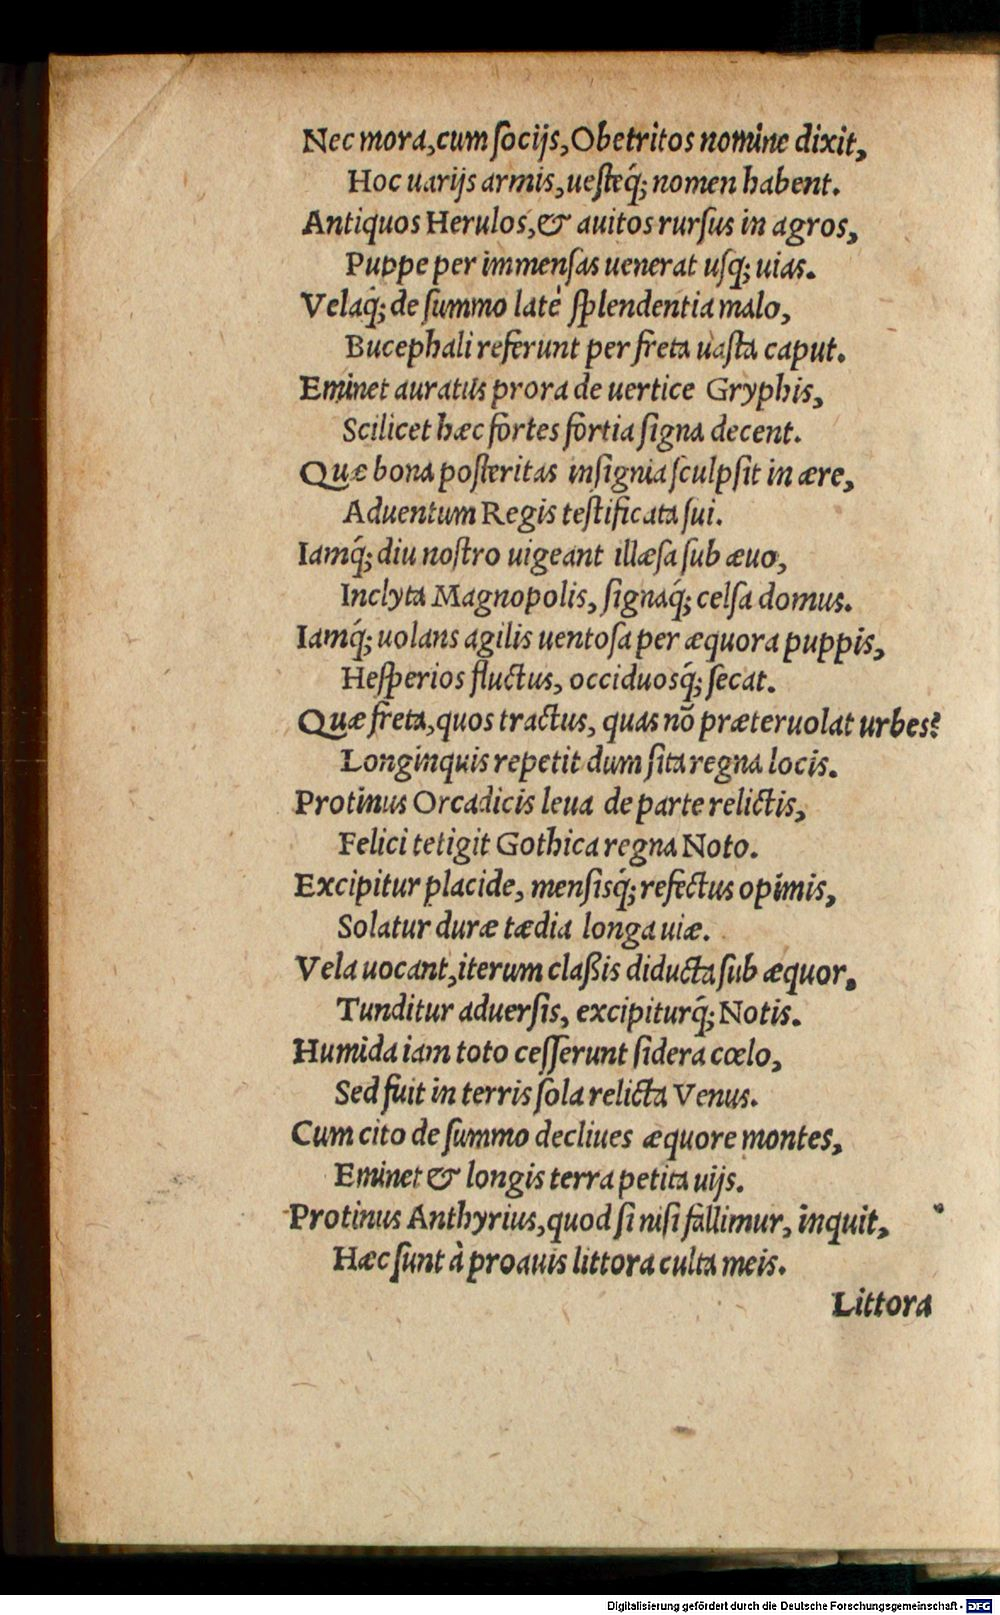 Nec mora, cum ſocijs, Obetritos nomine dixit,
Hoc uarijs armis, ueſteq́; nomen habent.
Antiquos Herulos, & auitos rurſus in agros,
Puppe per immenſas uenerat uſq; uias.
Velaq́; de ſummo latè ſplendentia malo,
Bucephali referunt per freta uaſta caput.
Eminet auratus prora de uertice Gryphis,
Scilicet hæc fortes fortia ſigna decent.
Quæ bona poſteritas inſignia ſculpſit in ære,
Aduentum Regis teſtificata ſui.
Iamq́; diu noſtro uigeant illæſa ſub æuo,
Inclyta Magnopolis, ſignaq́; celſa domus.
Iamq́; uolans agilis uentoſa per æquora puppis,
Heſperios fluctus, occiduosq́; ſecat.
Quæ freta, quos tractus, quas nō præteruolat urbes?
Longinquis repetit dum ſita regna locis.
Protinus Orcadicis leua de parte relictis,
Felici tetigit Gothica regna Noto.
Excipitur placide, menſisq́; refectus opimis,
Solatur duræ tædia longa uiæ.
Vela uocant, iterum claßis diducta ſub æquor,
Tunditur aduerſis, excipiturq́; Notis.
Humida iam toto ceſſerunt ſidera cœlo,
Sed fuit in terris ſola relicta Venus.
Cum cito de ſummo decliues æquore montes,
Eminet & longis terra petita uijs.
Protinus Anthyrius, quod ſi niſi fallimur, inquit,
Hæc ſunt à proauis littora culta meis.
Littora
Digitalisierung gefördert durch die Deutsche Forschungsgemeinschaft - DFG